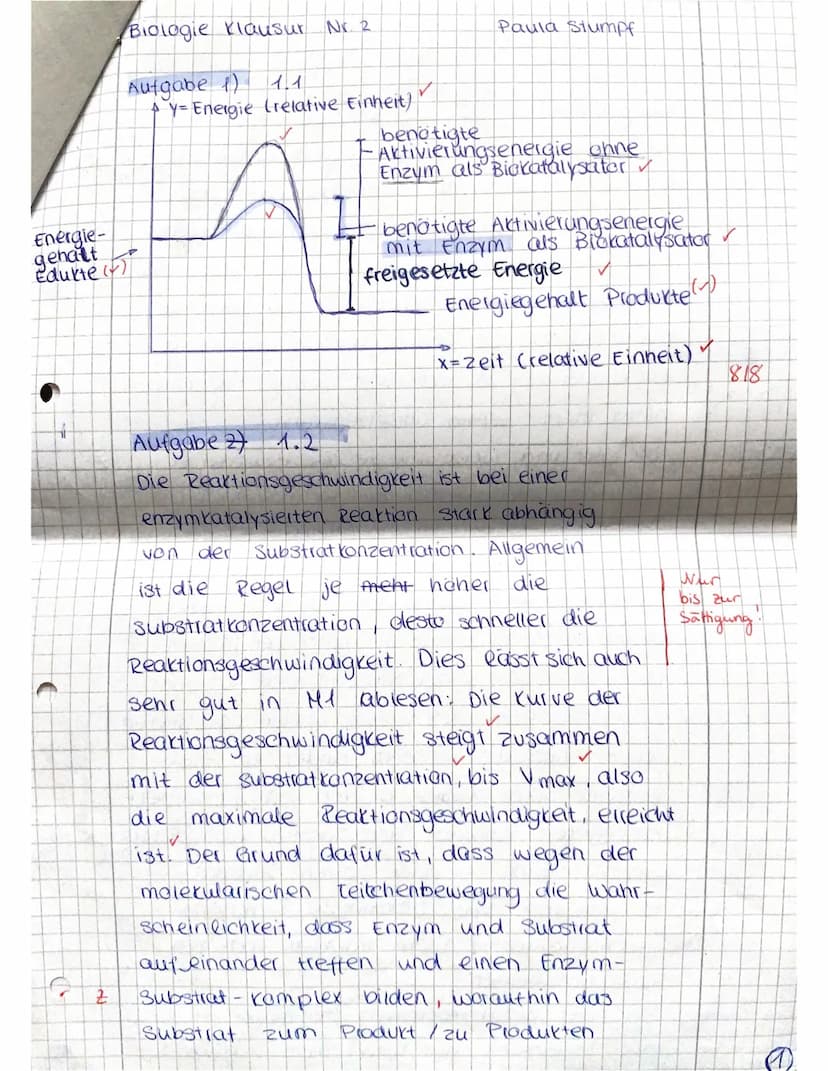 Biologie Klausur Nr. 2 Paula Stumpf
Aufgabe 1) 1.1
y= Energie (relative Einheit) ✓
benötigte
Aktivierungsenergie ohne
Enzym als Biokatalysator ✓
benötigte Aktivierungsenergie
mit Enzym als Biokatalysator ✓
Energie-
gehalt
Edukte (✓)
freigesetzte Energie ✓
Energiegehalt Produkte (✓)
x=Zeit (relative Einheit) ✓
8/8
Aufgabe 2) 1.2
Die Reaktionsgeschwindigkeit ist bei einer
enzymkatalysierten Reaktion stark abhängig
von der Substratkonzentration. Allgemein
ist die Regel je mehr höher die
Substratkonzentration, desto schneller die
Reaktionsgeschwindigkeit. Dies lässt sich auch
Nur
bis zur
Sättigung!
sehr gut in M1 ablesen: Die Kurve der
Reaktionsgeschwindigkeit steigt zusammen
mit der Substratkonzentration, bis Vmax, also
die maximale Reaktionsgeschwindigkeit, erreicht
ist. Der Grund dafür ist, dass wegen der
molekularischen Teilchenbewegung die Wahr-
scheinlichkeit, dass Enzym und Substrat
aufeinander treffen und einen Enzym-
z Substrat-komplex bilden, woraufhin das
Substrat zum Produkt / zu Produkten
1